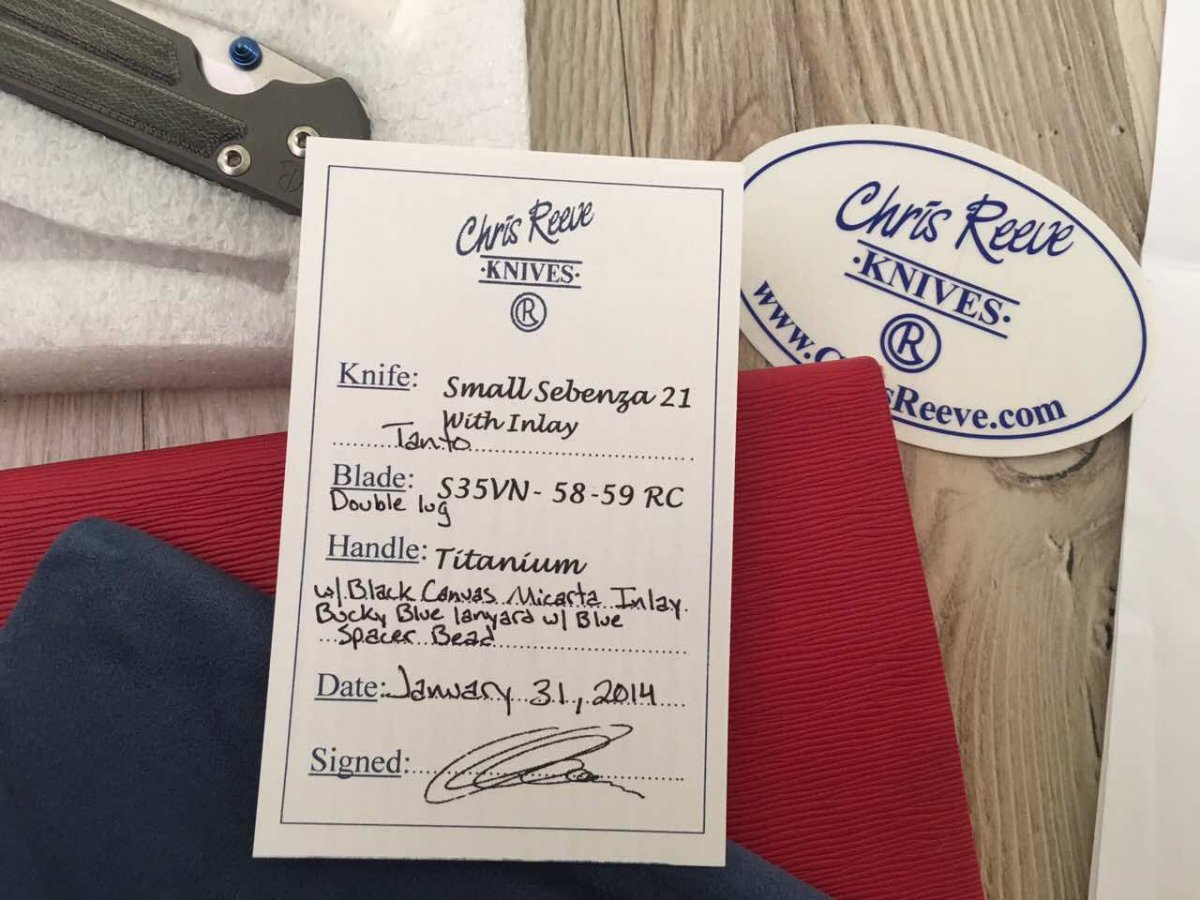 Chris Reeve
·KNIVES·
R
Knife: Small Sebenza 21
With Inlay
Tanto
Blade: S35VN- 58-59 RC
Double lug
Handle: Titanium
w/ Black Canvas Micarta Inlay.
Bucky Blue lanyard w/ Blue
Spacer Bead
Date: January 31, 2014
Signed:
Chris Reeve
·KNIVES·
R
www.C
sReeve.com